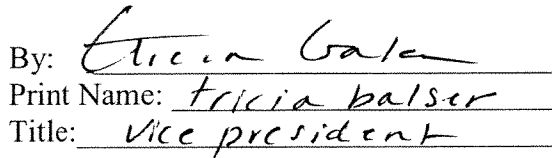 By: tricia balser
Print Name: tricia balser
Title: vice president